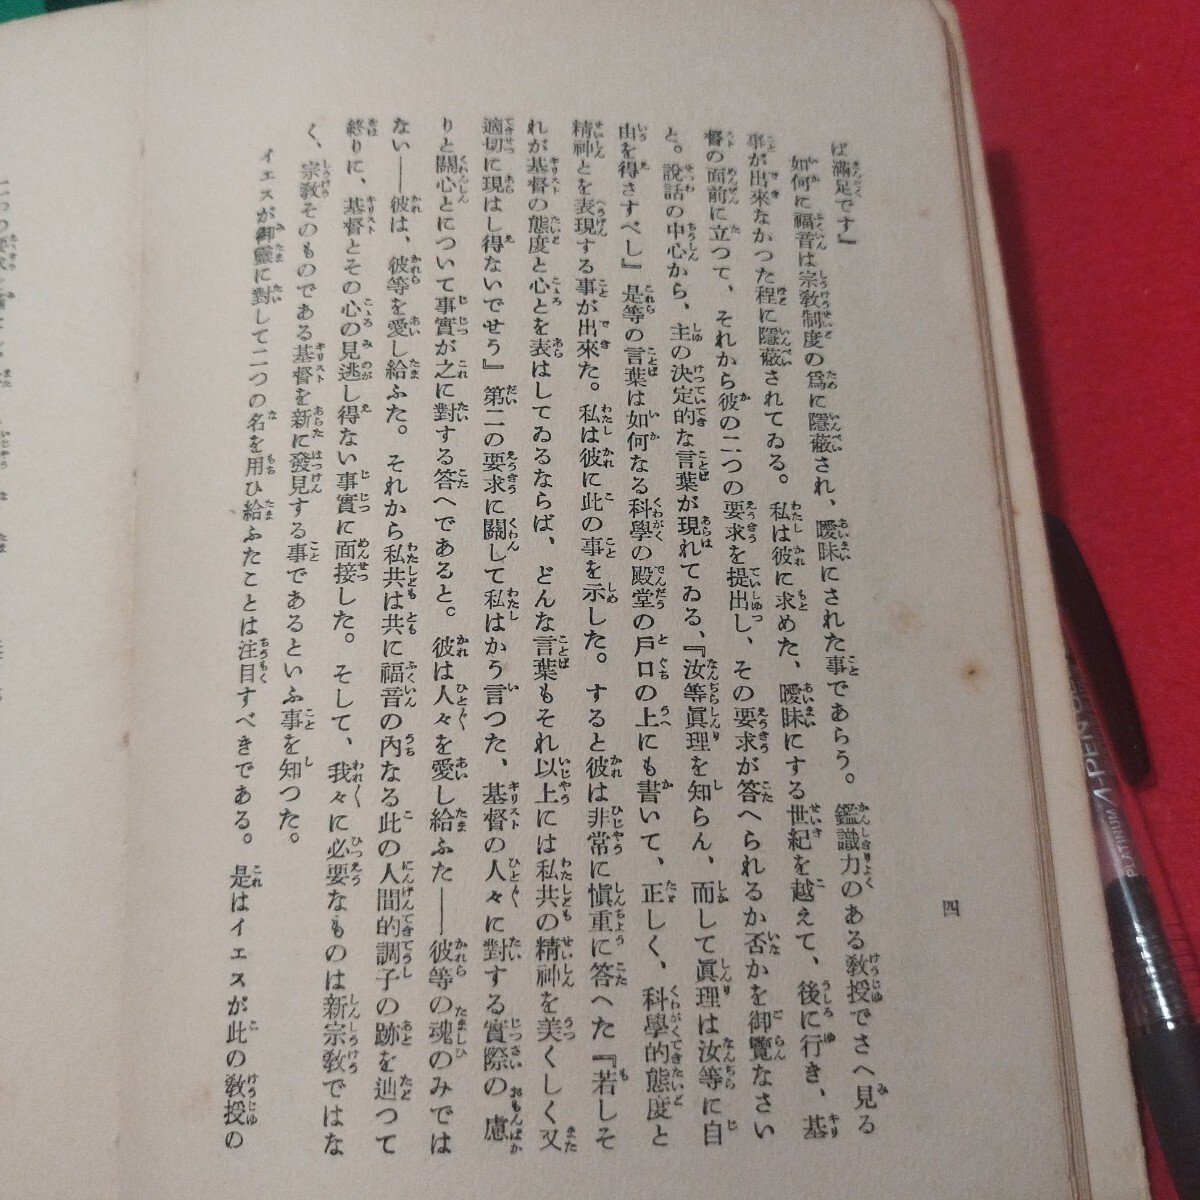 ば滿足です』
如何に福音は宗教制度の爲に隱蔽され、曖昧にされた事であらう。鑑識力のある教授でさへ見る
事が出來なかつた程に隱蔽されてゐる。私は彼に求めた、曖昧にする世紀を越えて、後に行き、基
督の面前に立つて、それから彼の二つの要求を提出し、その要求が答へられるか否かを御覽なさい
と。說話の中心から、主の決定的な言葉が現れてゐる、『汝等眞理を知らん、而して眞理は汝等に自
由を得さすべし』是等の言葉は如何なる科學の殿堂の戸口の上にも書いて、正しく、科學的態度と
精神とを表現する事が出來た。私は彼に此の事を示した。すると彼は非常に愼重に答へた『若しそ
れが基督の態度と心とを表はしてゐるならば、どんな言葉もそれ以上には私共の精神を美くしく又
適切に現はし得ないでせう』第二の要求に關して私はかう言つた、基督の人々に對する實際の慮
りと關心とについて事實が之に對する答へであると。彼は人々を愛し給ふた──彼等の魂のみでは
ない──彼は、彼等を愛し給ふた。それから私共は共に福音の內なる此の人間的調子の跡を辿つて
終りに、基督とその心の見逃し得ない事實に面接した。そして、我々に必要なものは新宗教ではな
く、宗教そのものである基督を新に發見する事であるといふ事を知つた。
イエスが御靈に對して二つの名を用ひ給ふたことは注目すべきである。是はイエスが此の教授の
四
PLATINUM